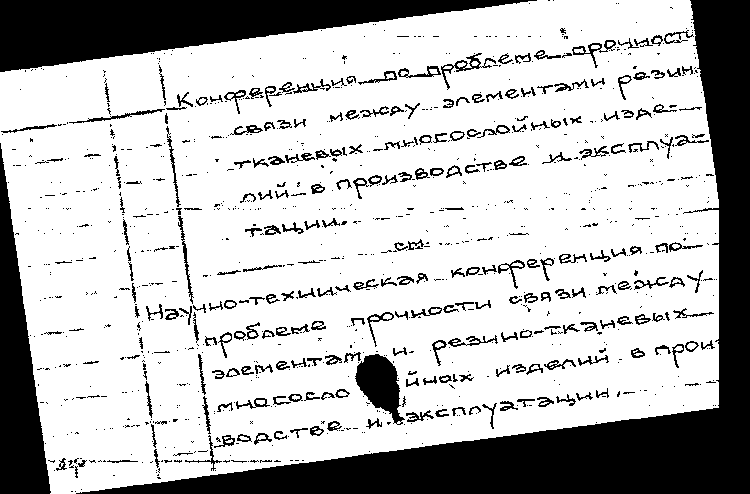 Конференция по проблеме прочности
связи между элементами резин
тканевых многослойных изде-
лий в производстве и эксплуа-
тации.
см.
Научно-техническая конференция по
проблеме прочности связи между
элементам и резино-тканевых
многосло йных изделий в произ
водстве и эксплуатации.